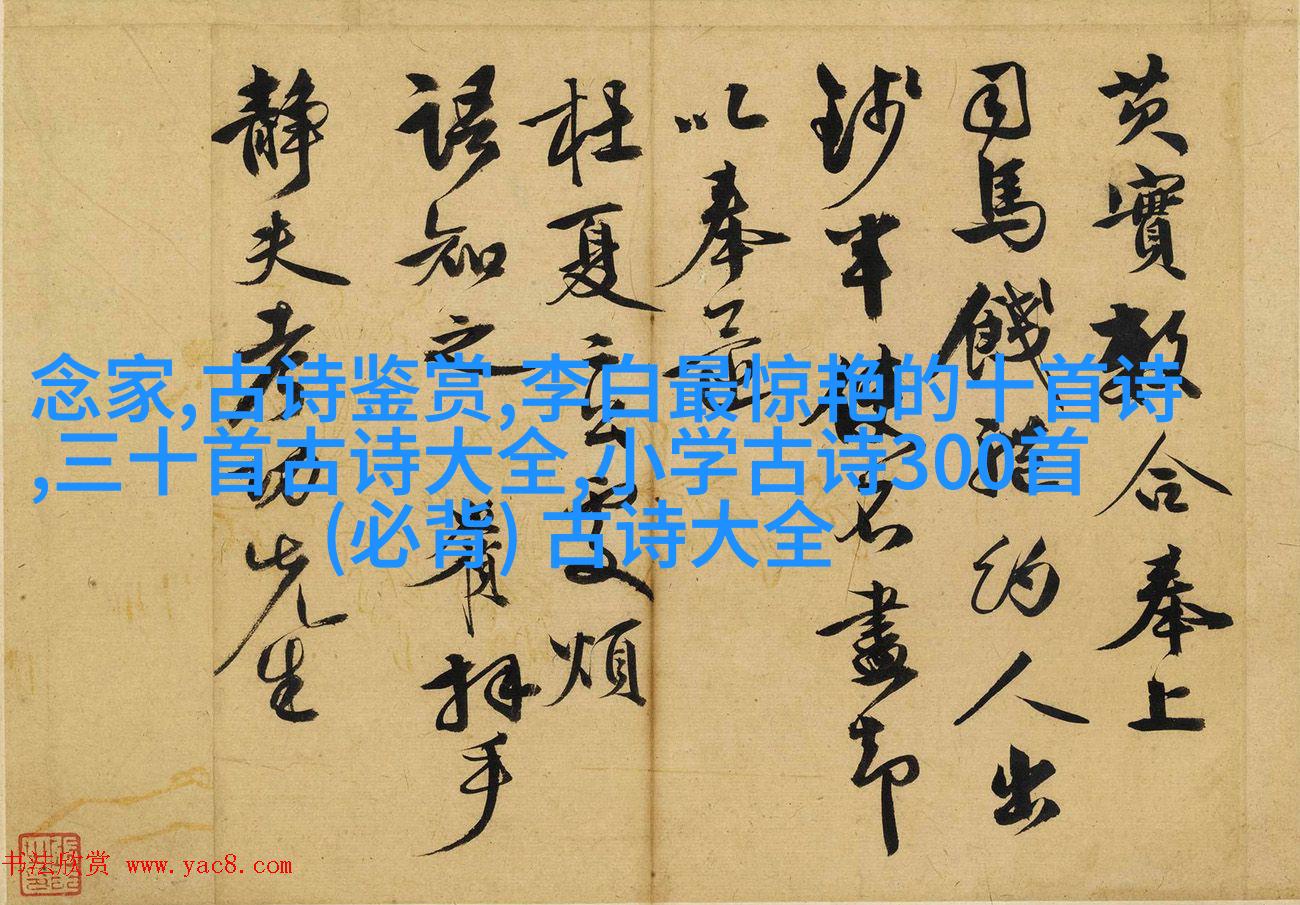 芡實数合奉上
司馬 約人出
錢半 不盡却
以奉
枉夏 更煩
語知之 拜手
静夫老 先生
念家,古诗鉴赏,李白最惊艳的十首诗
,三十首古诗大全,小学古诗300首
(必背) 古诗大全
书法欣赏 www.yac8.com